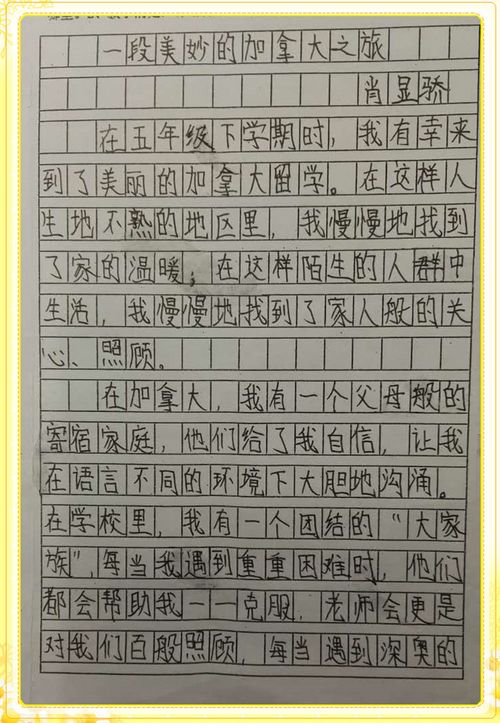 一段美妙的加拿大之旅
肖显骄
在五年级下学期时，我有幸来
到了美丽的加拿大留学。在这样人
生地不熟的地区里，我慢慢地找到
了家的温暖；在这样陌生的人群中
生活，我慢慢地找到了家人般的关
心、照顾。
在加拿大，我有一个父母般的
寄宿家庭，他们给了我自信，让我
在语言不同的环境下大胆地沟涌。
在学校里，我有一个团结的“大家
族”，每当我遇到重重困难时，他们
都会帮助我一一克服，老师会更是
对我们百般照顾，每当遇到深奥的